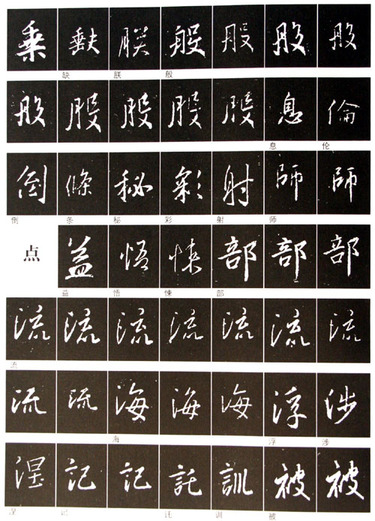 乘 缺 朕 般 般 般 般
缺 朕 般
般 般 般 般 般 息 倫
息 伦
倒 條 秘 彩 射 師 師
倒 条 秘 彩 射 师
点 益 悟 悚 部 部 部
益 悟 悚 部
流 流 流 流 流 流 流
流
流 流 海 海 海 浮 涉
海 浮 涉
涅 記 記 託 訓 被 被
涅 记 训 被